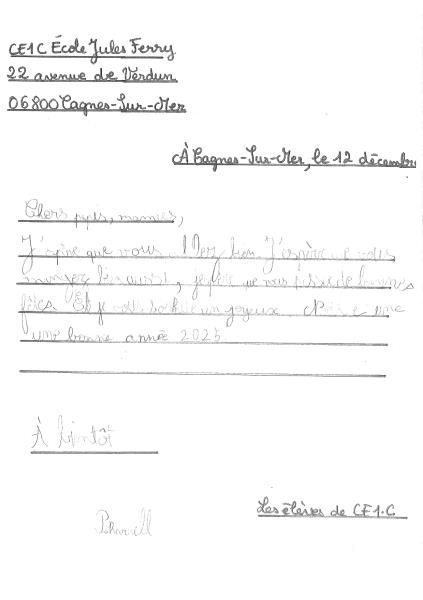 CE1C École Jules Ferry
22 avenue de Verdun
06800 Cagnes-Sur-Mer
À Cagnes-Sur-Mer, le 12 décembre
Chers papis, mamies,
J'espère que vous allez bien. J'espère que vous
mangez bien aussi, j'espère que vous de bonnes
fêtes Et je vous souhaite un joyeux Noël une
une bonne année 2025
À bientôt
Les élèves de CE1.C